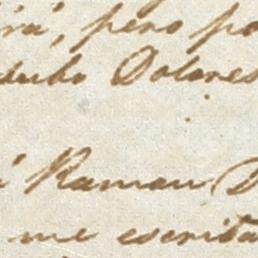 rá, pero po
dubo Dolores
á Ramon D
me escrita